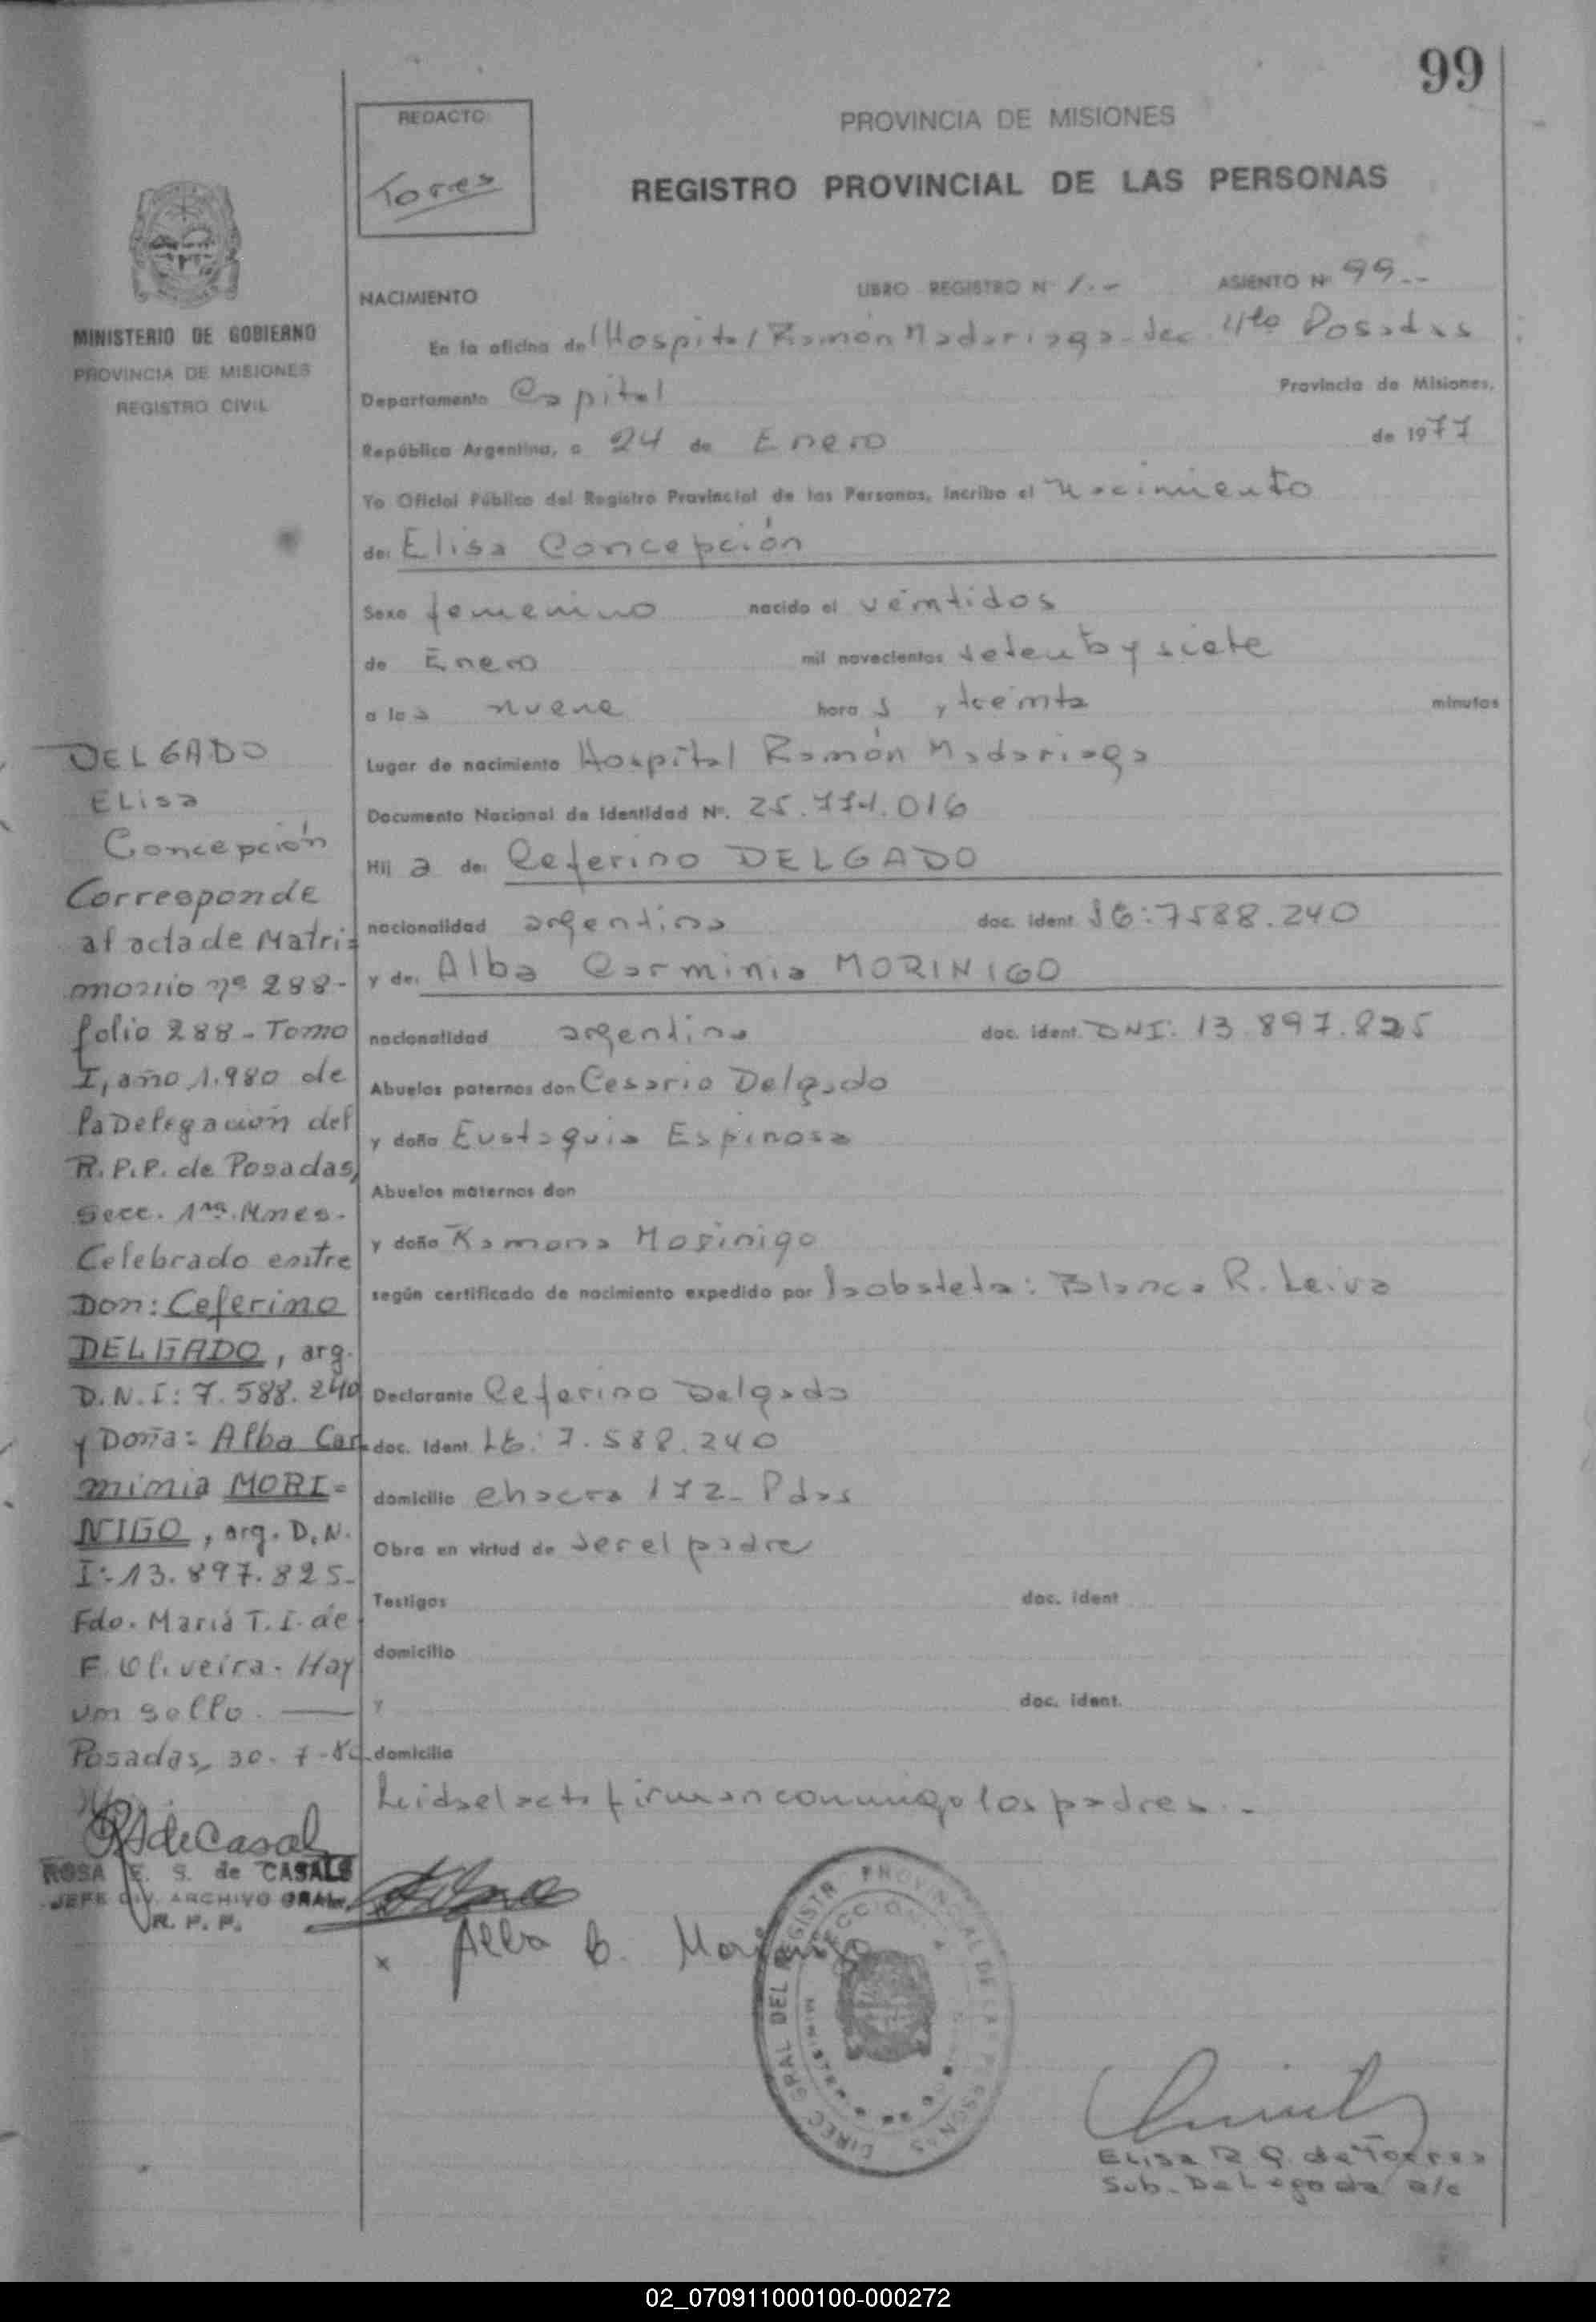 99
REDACTO:
Torres
PROVINCIA DE MISIONES
REGISTRO PROVINCIAL DE LAS PERSONAS
MINISTERIO DE GOBIERNO
PROVINCIA DE MISIONES
REGISTRO CIVIL
NACIMIENTO LIBRO REGISTRO Nº 1.-- ASIENTO Nº 99--
En la oficina del Hospital Ramón Madariaga - Sec. 4ta Posadas
Departamento Capital Provincia de Misiones,
República Argentina, a 24 de Enero de 1977
Yo Oficial Público del Registro Provincial de las Personas, incribo el Nacimiento
de: Elisa Concepción
Sexo femenino nacido el veintidos
de Enero mil novecientos setenta y siete
a las nueve hora s y treinta minutos
Lugar de nacimiento Hospital Ramón Madariaga
Documento Nacional de Identidad Nº. 25.774.016
Hij a de: Ceferino DELGADO
nacionalidad argentina doc. ident. 7588.240
y de: Alba Carminia MORINIGO
nacionalidad argentina doc. ident. DNI: 13.897.825
Abuelos paternos don Cesario Delgado
y doña Eustaquia Espinosa
Abuelos maternos don
y doña Ramona Morinigo
según certificado de nacimiento expedido por la obsteta: Blanca R. Leiva
Declarante Ceferino Delgado
doc. ident. LE: 7.588.240
domicilio chacra 172- Pdas
Obra en virtud de ser el padre
Testigos doc. ident
domicilio
y doc. ident.
domicilio
Leida el acta firman conmigo los padres.-
DELGADO
Elisa
Concepción
Corresponde
al acta de Matri=
monio nº 288-
folio 288- Tomo
I, año 1.980 de
la Delegación del
R.P.P. de Posadas,
Secc. 1ra. Mnes.
Celebrado entre
Don: Ceferino
DELGADO, arg.
D.N.I: 7.588.240
y Doña: Alba Car
minia MORI=
NIGO, arg. D.N.
I: 13.897.825-
Fdo. Maria T. I. de
F. Oliveira. Hay
un sello.
Posadas, 30-7-80
RSdeCasals
ROSA E. S. de CASALS
JEFE DIV. ARCHIVO GRAL.
R. P. P.
x Alba C. Morinigo
DIREC. GRAL DEL REGISTR. PROVINCIAL DE LAS PERSONAS
Elisa R Q. de Torres
Sub-Delegada a/c
02_070911000100-000272